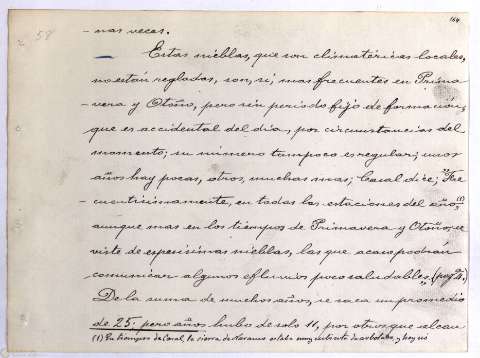 164
58
- nas veces.
Estas nieblas, que son climatéricas locales,
no están regladas, son, si, mas frecuentes en Prima-
- vera y Otoño, pero sin periodo fijo de formación,
que es accidental del dia, por circunstancias del
momento; su número tampoco es regular; unos
años hay pocas, otros, muchas mas; Caral dice; "Fre-
- cuentisimamente, en todas las estaciones del año, (1)
aunque mas en los tiempos de Primavera y Otoño, se
viste de espesisimas nieblas, las que acaso podrán
comunicar algunos efluvios poco saludables," (pag.ª 4.)
De la suma de muchos años, se saca un promedio
de 25: pero años hubo de solo 11, por otros que alcan-
(1) En tiempos de Caral, la sierra de estaba muy cubierta de arbolado, y hoy nó